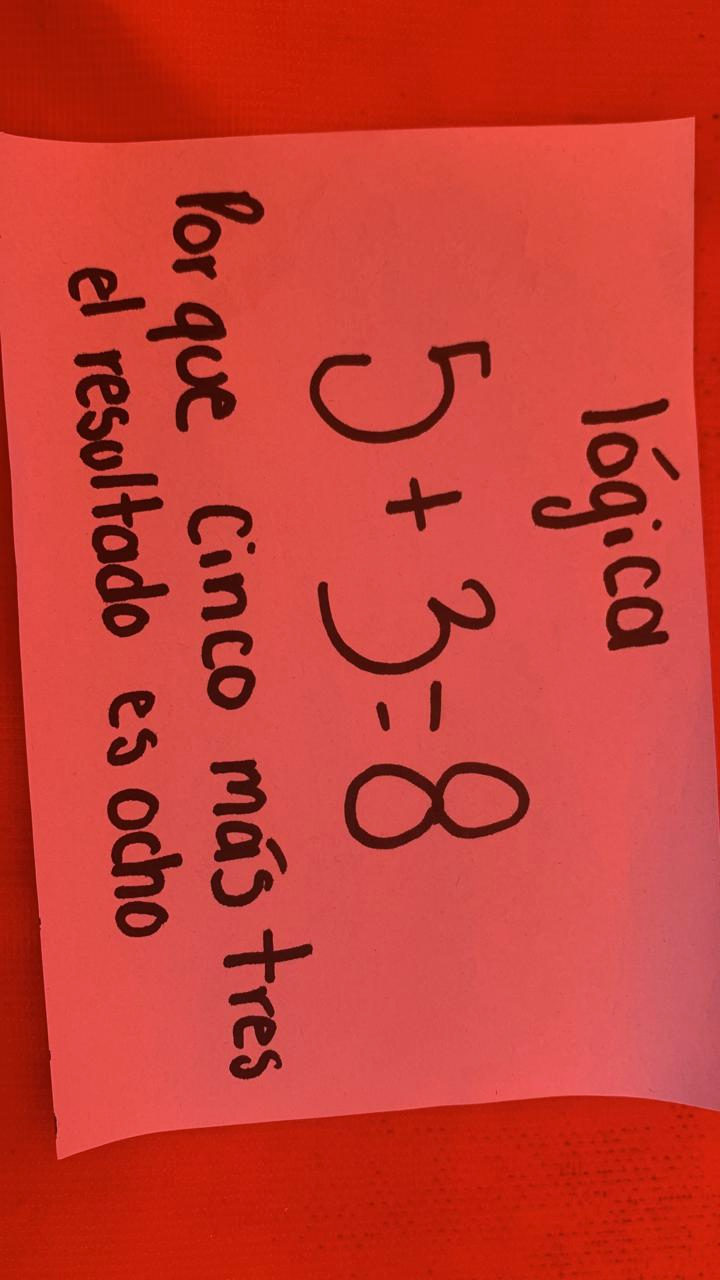 lógica
5 + 3 = 8
Por que cinco más tres
el resultado es ocho